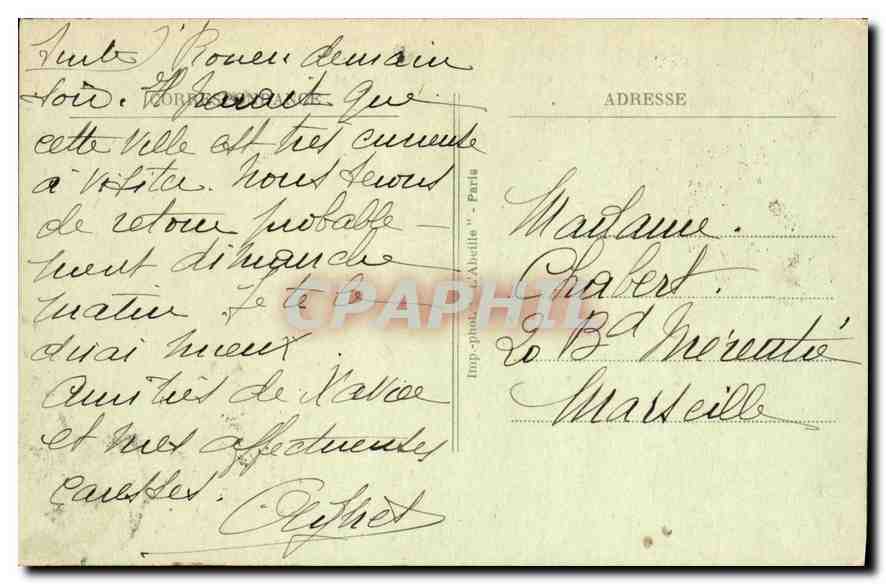 (Suite) Rouen demain
soir. Il paraît que
CORRESPONDANCE
cette ville est très curieuse
à visiter. Nous serons
de retour probable-
ment dimanche
matin. Je te le
dirai mieux.
Amitiés de Xavier
et mes affectueuses
caresses.
ADRESSE
Madame.
Chabert.
20 Bd Mérentié
Marseille
Imp.-phot. "L'Abeille" - Paris
CPAPHIL